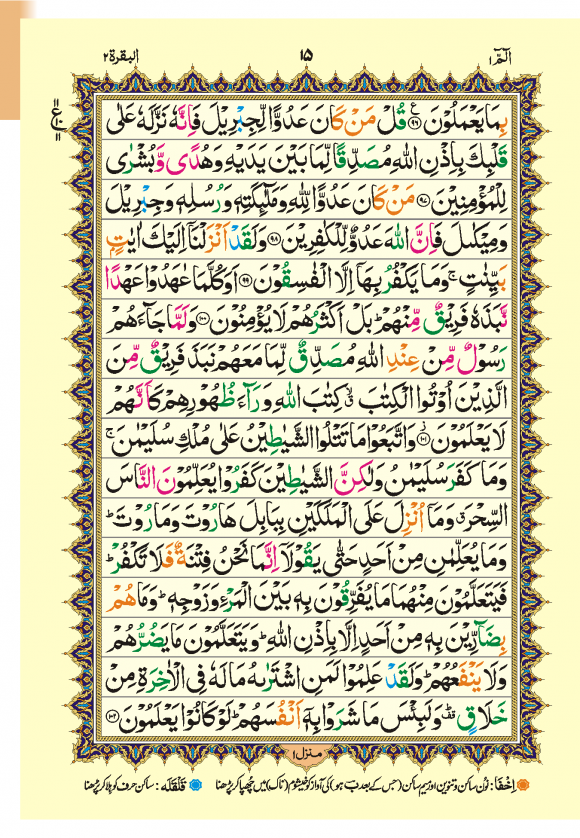 الٓمّٓ ۱
۱۵
البقرة ۲
بِمَا يَعْمَلُوْنَ ﴿۹۶﴾ قُلْ مَنْ كَانَ عَدُوًّا لِّجِبْرِيْلَ فَاِنَّهٗ نَزَّلَهٗ عَلٰى
قَلْبِكَ بِاِذْنِ اللّٰهِ مُصَدِّقًا لِّمَا بَيْنَ يَدَيْهِ وَهُدًى وَّبُشْرٰى
لِلْمُؤْمِنِيْنَ ﴿۹۷﴾ مَنْ كَانَ عَدُوًّا لِّلّٰهِ وَمَلٰٓئِكَتِهٖ وَرُسُلِهٖ وَجِبْرِيْلَ
وَمِيْكٰىلَ فَاِنَّ اللّٰهَ عَدُوٌّ لِّلْكٰفِرِيْنَ ﴿۹۸﴾ وَلَقَدْ اَنْزَلْنَاۤ اِلَيْكَ اٰيٰتٍۭ
بَيِّنٰتٍ ۚ وَمَا يَكْفُرُ بِهَاۤ اِلَّا الْفٰسِقُوْنَ ﴿۹۹﴾ اَوَكُلَّمَا عٰهَدُوْا عَهْدًا
نَّبَذَهٗ فَرِيْقٌ مِّنْهُمْ ؕ بَلْ اَكْثَرُهُمْ لَا يُؤْمِنُوْنَ ﴿۱۰۰﴾ وَلَمَّا جَآءَهُمْ
رَسُوْلٌ مِّنْ عِنْدِ اللّٰهِ مُصَدِّقٌ لِّمَا مَعَهُمْ نَبَذَ فَرِيْقٌ مِّنَ
الَّذِيْنَ اُوْتُوا الْكِتٰبَ ۙ كِتٰبَ اللّٰهِ وَرَآءَ ظُهُوْرِهِمْ كَاَنَّهُمْ
لَا يَعْلَمُوْنَ ﴿۱۰۱﴾ وَاتَّبَعُوْا مَا تَتْلُوا الشَّيٰطِيْنُ عَلٰى مُلْكِ سُلَيْمٰنَ ۚ
وَمَا كَفَرَ سُلَيْمٰنُ وَلٰكِنَّ الشَّيٰطِيْنَ كَفَرُوْا يُعَلِّمُوْنَ النَّاسَ
السِّحْرَ ۗ وَمَاۤ اُنْزِلَ عَلَى الْمَلَكَيْنِ بِبَابِلَ هَارُوْتَ وَمَارُوْتَ ؕ
وَمَا يُعَلِّمٰنِ مِنْ اَحَدٍ حَتّٰى يَقُوْلَاۤ اِنَّمَا نَحْنُ فِتْنَةٌ فَلَا تَكْفُرْ ؕ
فَيَتَعَلَّمُوْنَ مِنْهُمَا مَا يُفَرِّقُوْنَ بِهٖ بَيْنَ الْمَرْءِ وَزَوْجِهٖ ؕ وَمَا هُمْ
بِضَآرِّيْنَ بِهٖ مِنْ اَحَدٍ اِلَّا بِاِذْنِ اللّٰهِ ؕ وَيَتَعَلَّمُوْنَ مَا يَضُرُّهُمْ
وَلَا يَنْفَعُهُمْ ؕ وَلَقَدْ عَلِمُوْا لَمَنِ اشْتَرٰىهُ مَا لَهٗ فِى الْاٰخِرَةِ مِنْ
خَلَاقٍ ؕ۟ وَلَبِئْسَ مَا شَرَوْا بِهٖۤ اَنْفُسَهُمْ ؕ لَوْ كَانُوْا يَعْلَمُوْنَ ﴿۱۰۲﴾
منزل ۱
اِخْفَا: نون ساکن و تنوین اور میم ساکن (جس کے بعد ب ہو) کی آواز کو خیشوم (ناک) میں چھپا کر پڑھنا قَلْقَلَه: ساکن حرف کو ہلا کر پڑھنا